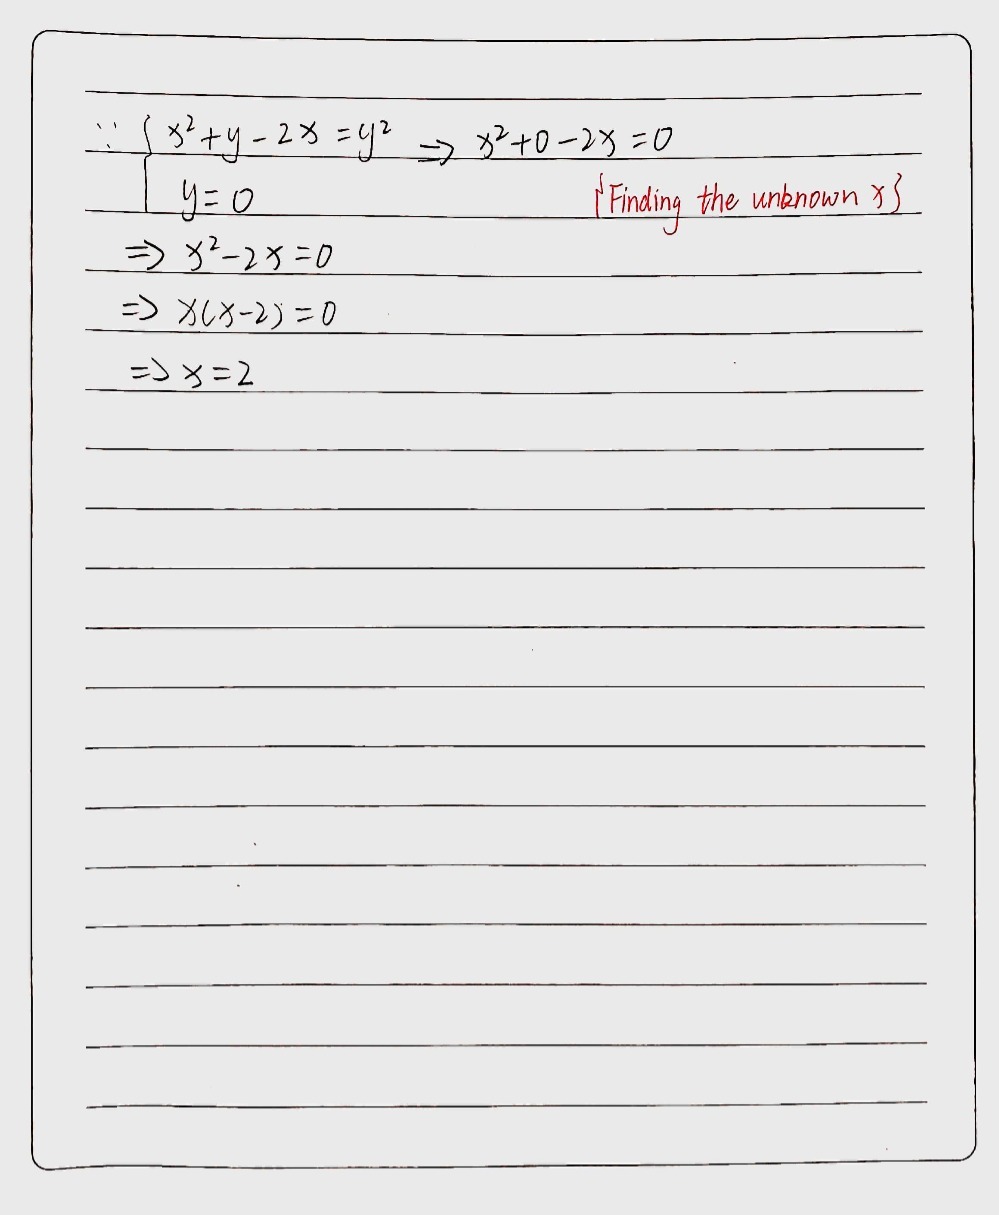 ∵ { x²+y-2x=y² ⇒ x²+0-2x=0
y=0 {Finding the unknown x}
⇒ x²-2x=0
⇒ x(x-2)=0
⇒ x=2